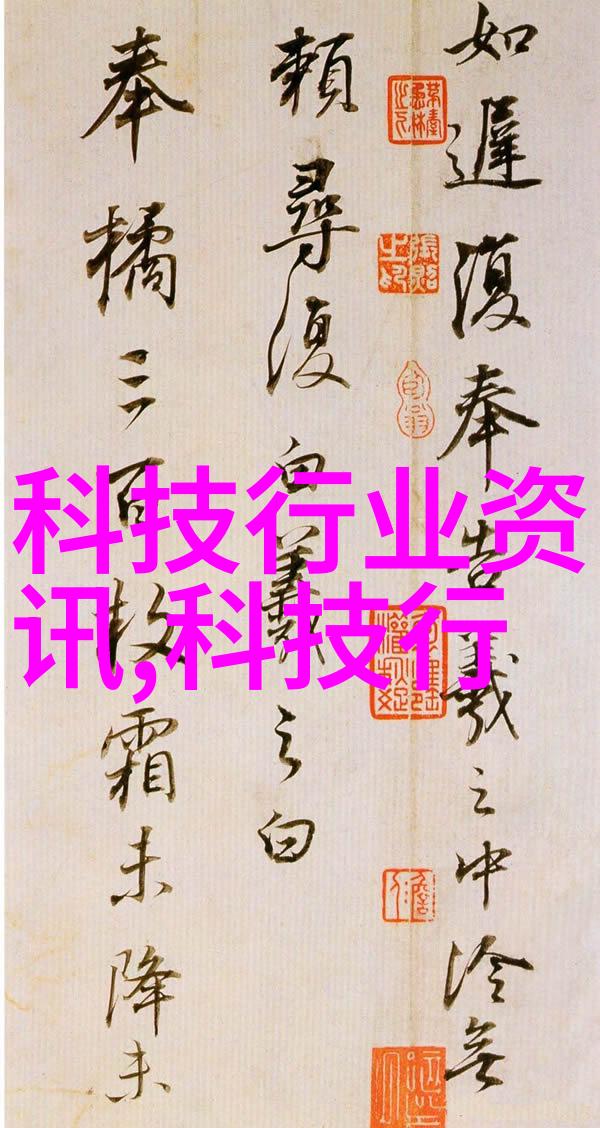 如遲復奉告羲之中冷無
賴尋復白羲之白
奉橘三百枚霜未降未
科技行业资
讯,科技行